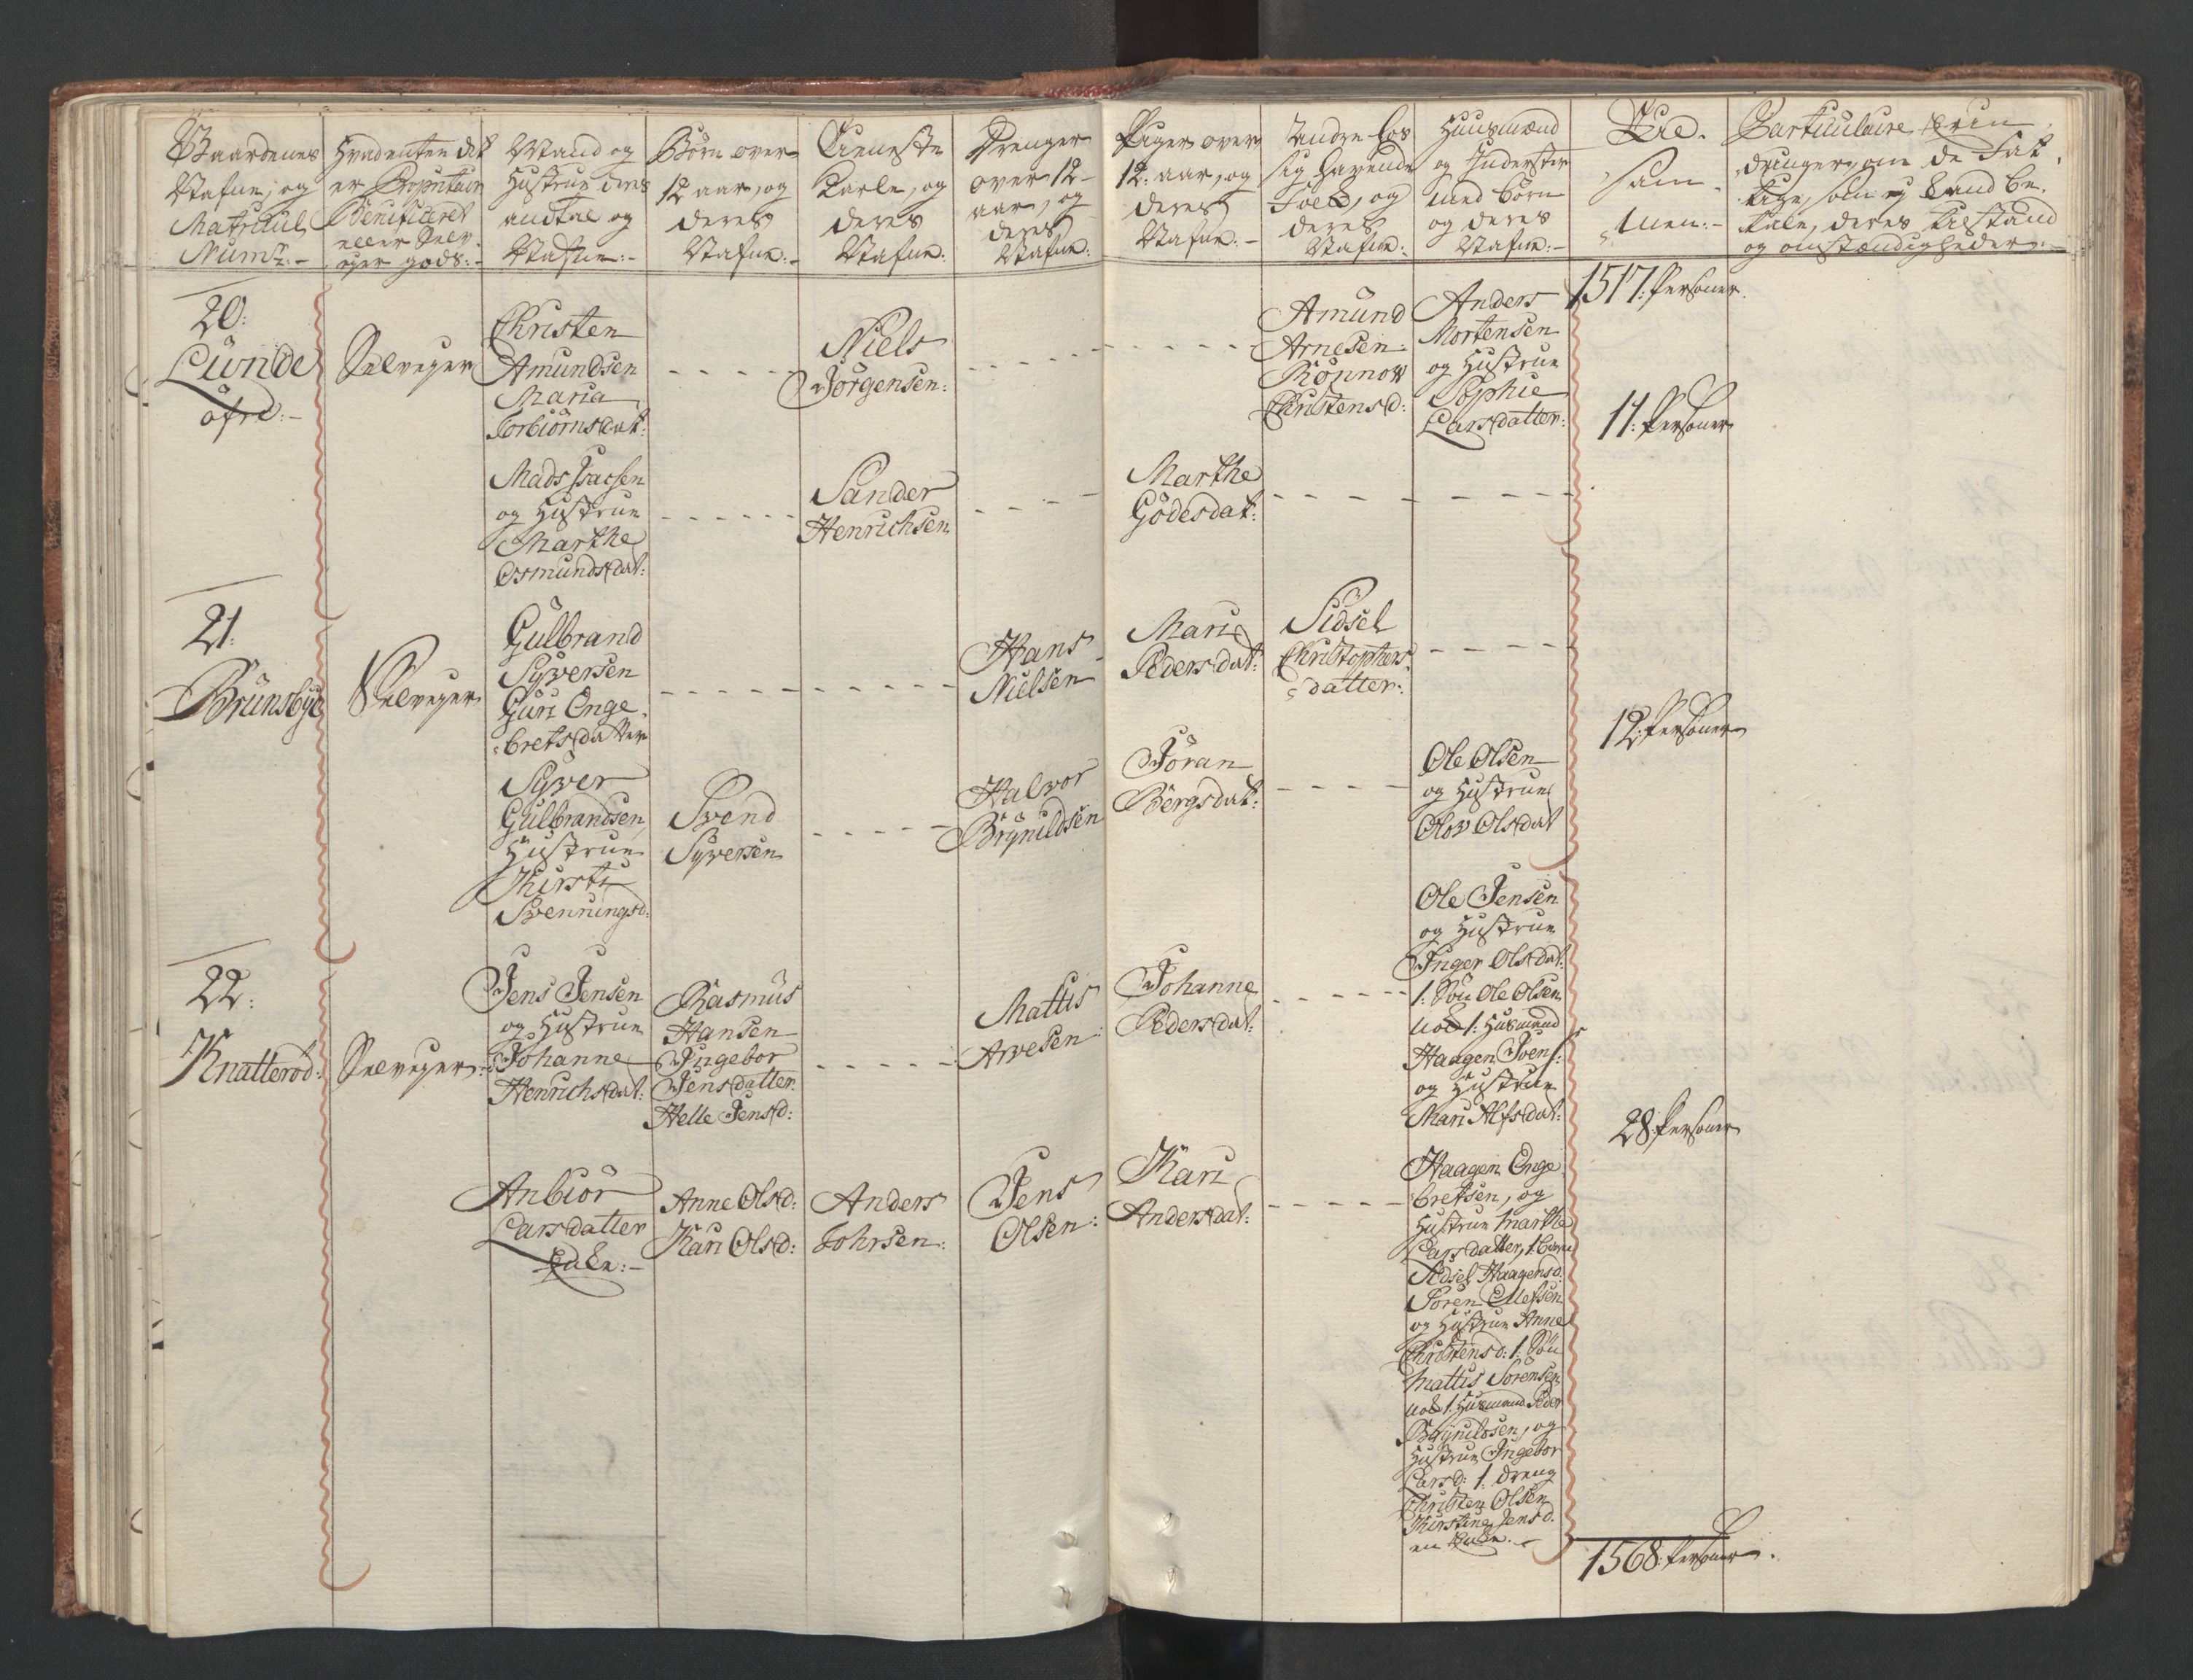 Gaardenes
Nafne, og
Matricul
Num:r:-
Hvad enten det
er Propritair
Benificeret
eller Selv-
eyer gods:-
Mand og
Hustrue deres
andtal og
Nafne:-
Børn over
12 aar, og
deres
Nafne:-
Tieneste
Karle, og
deres
Nafne:
Drenger
over 12-
aar, og
deres
Nafne:
Piger over
12: aar, og
deres
Nafne:-
Andre hos
sig havende
Folk, og
deres
Nafne:
Huusmænd
og Inderster
med børn
og deres
Nafne:-
Ere
Sam-
men:-
Particulaire Erin-
dringer, om de Fat-
tige, som ej kand be-
tale, deres tilstand
og omstændigheder:-
1517: Personer.
20:
Lunde
øfre:-
Selveyer
Christen
Amundsen
Maria
Torbiørnsdat:
Niels
Jørgensen:
Amund
Arnesen:
Rønnow
Christensd:
Anders
Mortensen
og Hustrue
Sophie
Larsdatter:
11: Personer
Mads Isacsen
og Hustrue
Marthe
Osmundsdat:
Sander
Henrichsen
Marthe
Gödesdat:
21:
Brunsbye
Selveyer
Gulbrand
Syversen
Guri Enge-
bretsdatter
Hans
Nielsen
Mari
Pedersdat:
Sidsel
Christophers-
datter:
12: Personer
Syver
Gulbrandsen
Hustrue
Kirsti
Svenningsd:
Svend
Syversen
Halvor
Brynildsen
Jöran
Bergsdat:
Ole Olsen
og Hustrue
Olow Olsdat
22:
Knatterød:
Selveyer:
Jens Jensen
og Hustrue
Johanne
Henrichsdat:
Rasmus
Hansen
Ingebor
Jensdatter
Helle Jensd:
Mattis
Arvesen:
Johanne
Pedersdat:
Ole Jensen
og Hustrue
Inger Olsdat:
1: Søn Ole Olsen
nok 1: Husmand
Haagen Ivens:
og Hustrue
Mari Alfsdat:
28: Personer
Anbiør
Larsdatter
Enke:-
Anne Olsd:
Kari Olsd:
Anders
Johrsen:
Jens
Olsen:
Kari
Andersdat:
Haagen Enge
bretsen, og
Hustrue Marthe
Larsdatter, 1: barn
Sidsel Haagensd.
Søren Ellefsen
og Hustrue Anne
Christensd: 1: Søn
Mattis Sørensen
nok 1: Husmand Peder
Brynildsen, og
Hustrue Ingebor
Larsd: 1: dreng
Christen Olsen
Kirstine Jensd.
en Enke:-
1568: Personer.